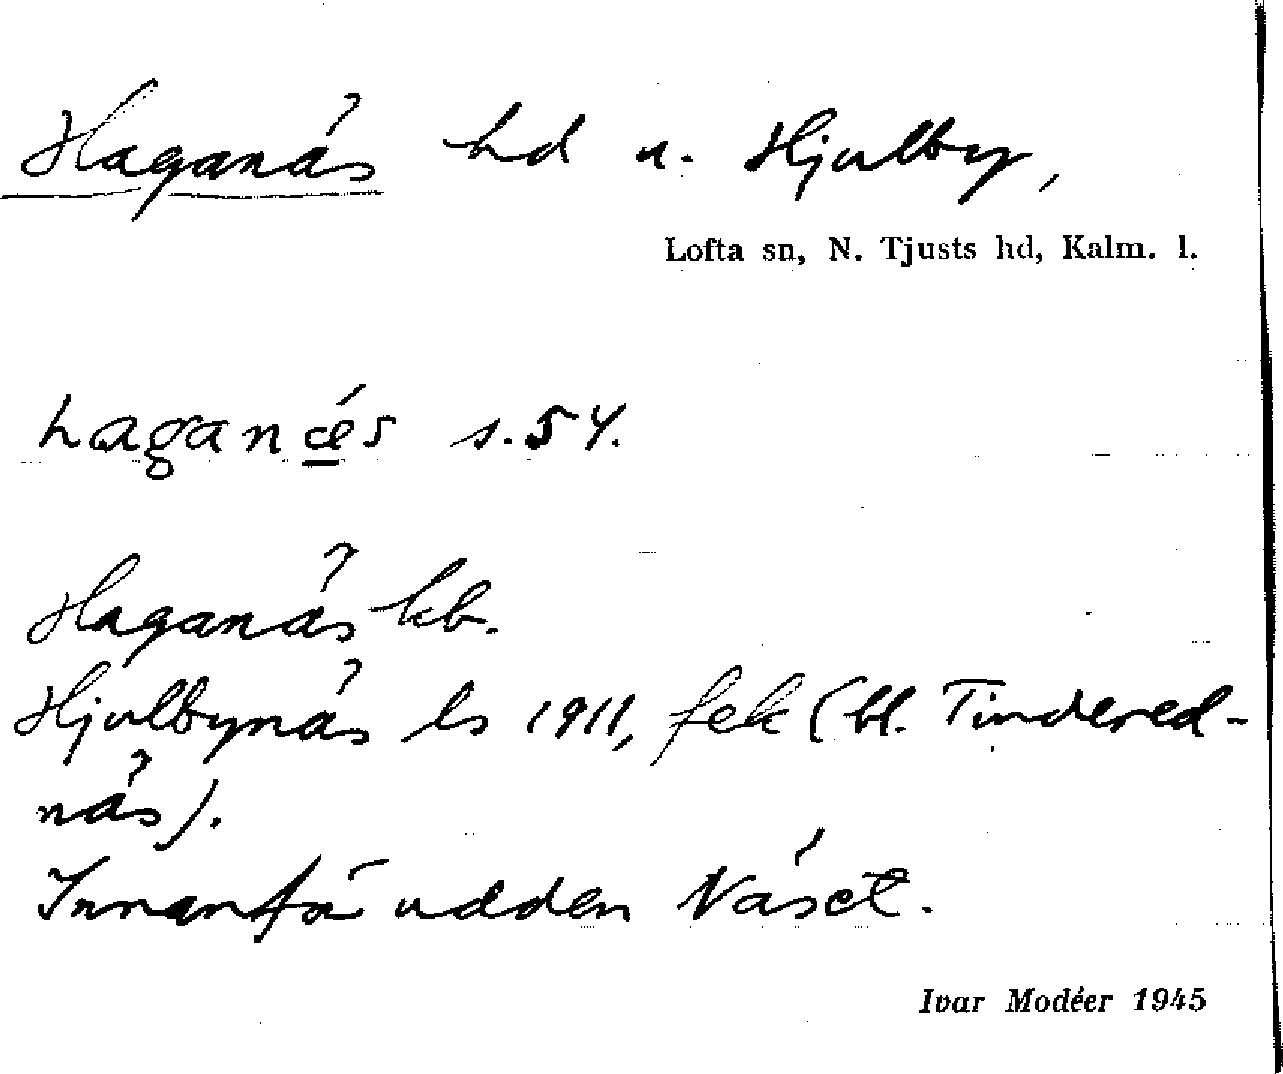 Haganäs hd u. Hjulby,
Lofta sn, N. Tjusts hd, Kalm. l.
haganǽs s. 54.
Haganäs kb.
Hjulbynäs ls 1911, fek (bl. Tindered-
näs).
Innanför udden Näset.
Ivar Modéer 1945